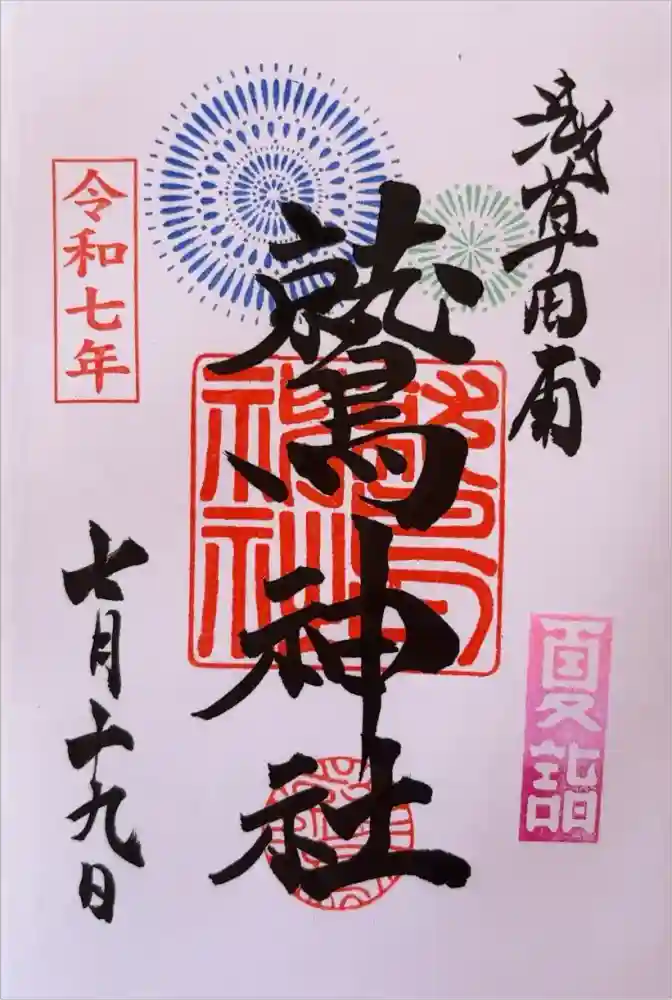 浅草田甫
鷲神社
夏詣
令和七年
七月十九日